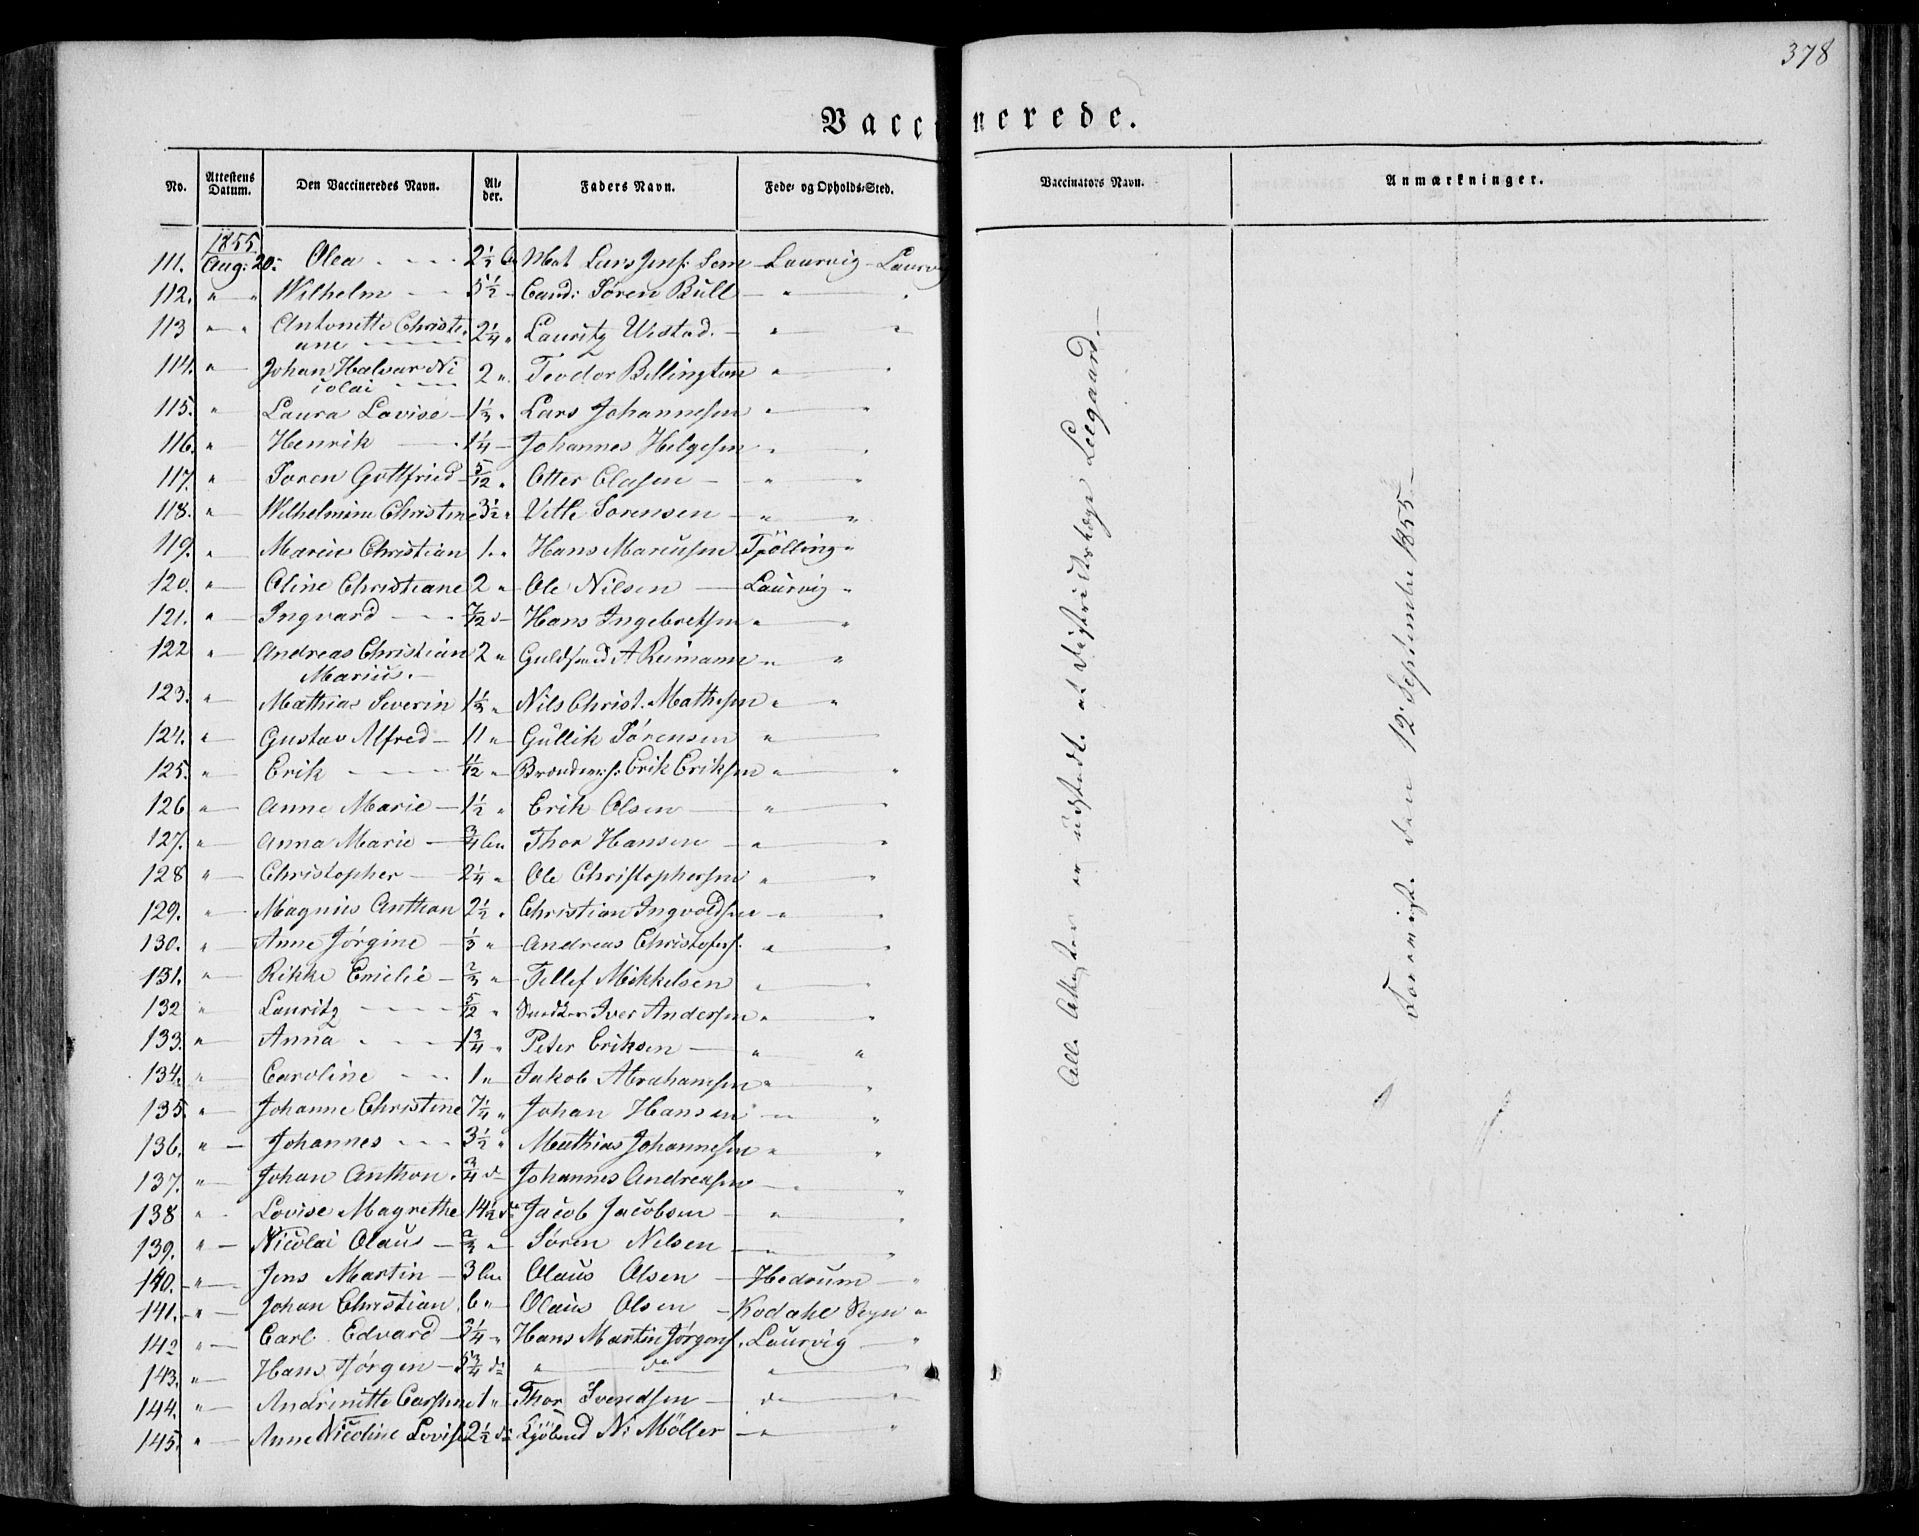 378
Vaccinerede.
No. Attestens Datum. Den Vaccineredes Navn. Alder. Faders Navn. Føde- og Opholds-Sted. Vaccinators Navn. Anmærkninger.
1855
111. Aug: 20. Olea 2 1/2 Mat Lars Jens: Sem Laurvig Laurvig
112. " " Wilhelm 5 1/2 " Cand: Søren Bull " "
113 " " Antonette Christi-
ane 2 1/4 " Lauritz Wistad. " "
114. " Johan Halvar Ni
colai 2 " Teodor Billington " "
115. " Laura Lovise 1 1/3 " Lars Johannesen " "
116. " Henrik 1 1/4 Johannes Helgesen " "
117. " Soren Gottfried 5/12 " Otter Olasen " "
118. " Wilhelmine Christine 3 1/2 " Vetle Sorensen " "
119. " Marius Christian 1 " Hans Marcusen Tjölling "
120. " Oline Christiane 2 " Ole Nilsen Laurvig "
121. " Ingvard 7/12 d Hans Ingebretsen " "
122 " Andreas Christian
Marius. 2 " Guldsmed A Reimann " "
123. " Mathias Severin 1 1/3 " Nils Christ. Mathesen " "
124. " Gustav Alfred 11 " Gullik Sørensen "
125. " Erik 11/12 " Erik Eriksen " "
126 " Anne Marie 1 1/2 " Erik Olsen " "
127. " Anna Marie 3/4 Thor Hansen " "
128 " Christopher 2 1/4 " Ole Christophersen " "
129. " Magnus Anthon 2 1/2 " Christian Ingvoldsen " "
130. " Anne Jørgine 1/3 " Andreas Christofers. " "
131. " Rikke Emilie 2/3 " Tellef Mikkelsen " "
132 " Lauritz 5/12 " Iver Andersen " "
133. " Anna 1 3/4 " Peter Eriksen " "
134. " Caroline 1 " Jakob Abrahamsen " "
135. " Johanne Christine 7 1/4 " Johan Hansen " "
136. " Johannes 3 1/2 " Mathias Johannesen " "
137. " Johan Anthon. 3/4 d Johannes Andreasen " "
138 " Lovise Magrethe 14 1/2 do Jacob Jacobsen " "
139. " Nicolai Olaus 2/3 " Søren Nilsen " "
140. " Jens Martin 3 Olaus Olsen Hedrum "
141. " Johan Christian 6 " Olaus Olsen Kodahl Sogn "
142 " Carl Edvard 3 1/4 " Hans Martin Jørgens. Laurvig "
143. " Hans Jörgen 5 3/4 do " do " "
144. " Andrinette 1 " Thor Svendsen do "
145. " Anne Nicoline Lovise 2 1/2 do N: Möller " "
Alle Attester er udstedt. at Distriktslæge Leegaard.
den 12 September 1855